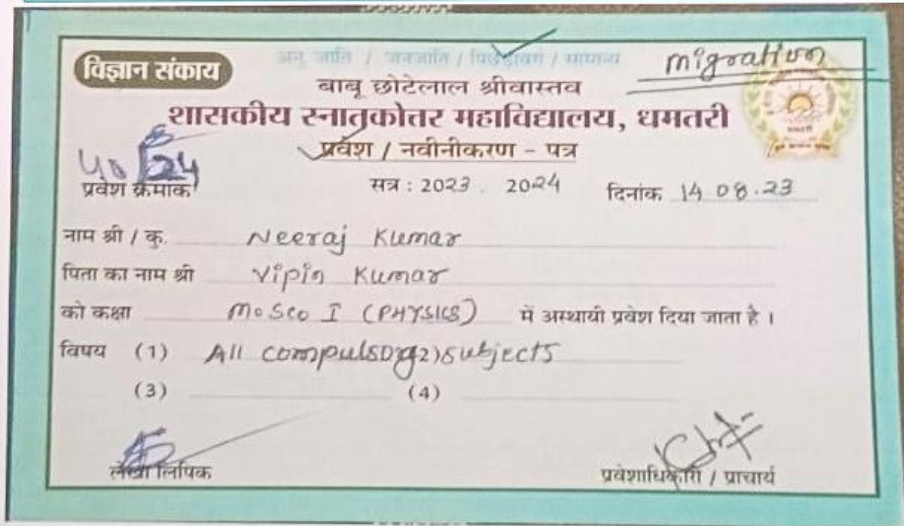 विज्ञान संकाय
अनु जाति / जनजाति / पिछड़ावर्ग / सामान्य
migration
बाबू छोटेलाल श्रीवास्तव
शासकीय स्नातकोत्तर महाविद्यालय, धमतरी
प्रवेश / नवीनीकरण - पत्र
प्रवेश क्रमांक
सत्र : 2023 . 2024 दिनांक 14.08.23
नाम श्री / कु. Neeraj Kumar
पिता का नाम श्री Vipin Kumar
को कक्षा M.Sc. I (PHYSICS) में अस्थायी प्रवेश दिया जाता है ।
विषय (1) All compulsory (2) subjects
(3) (4)
लेखा लिपिक प्रवेशाधिकारी / प्राचार्य